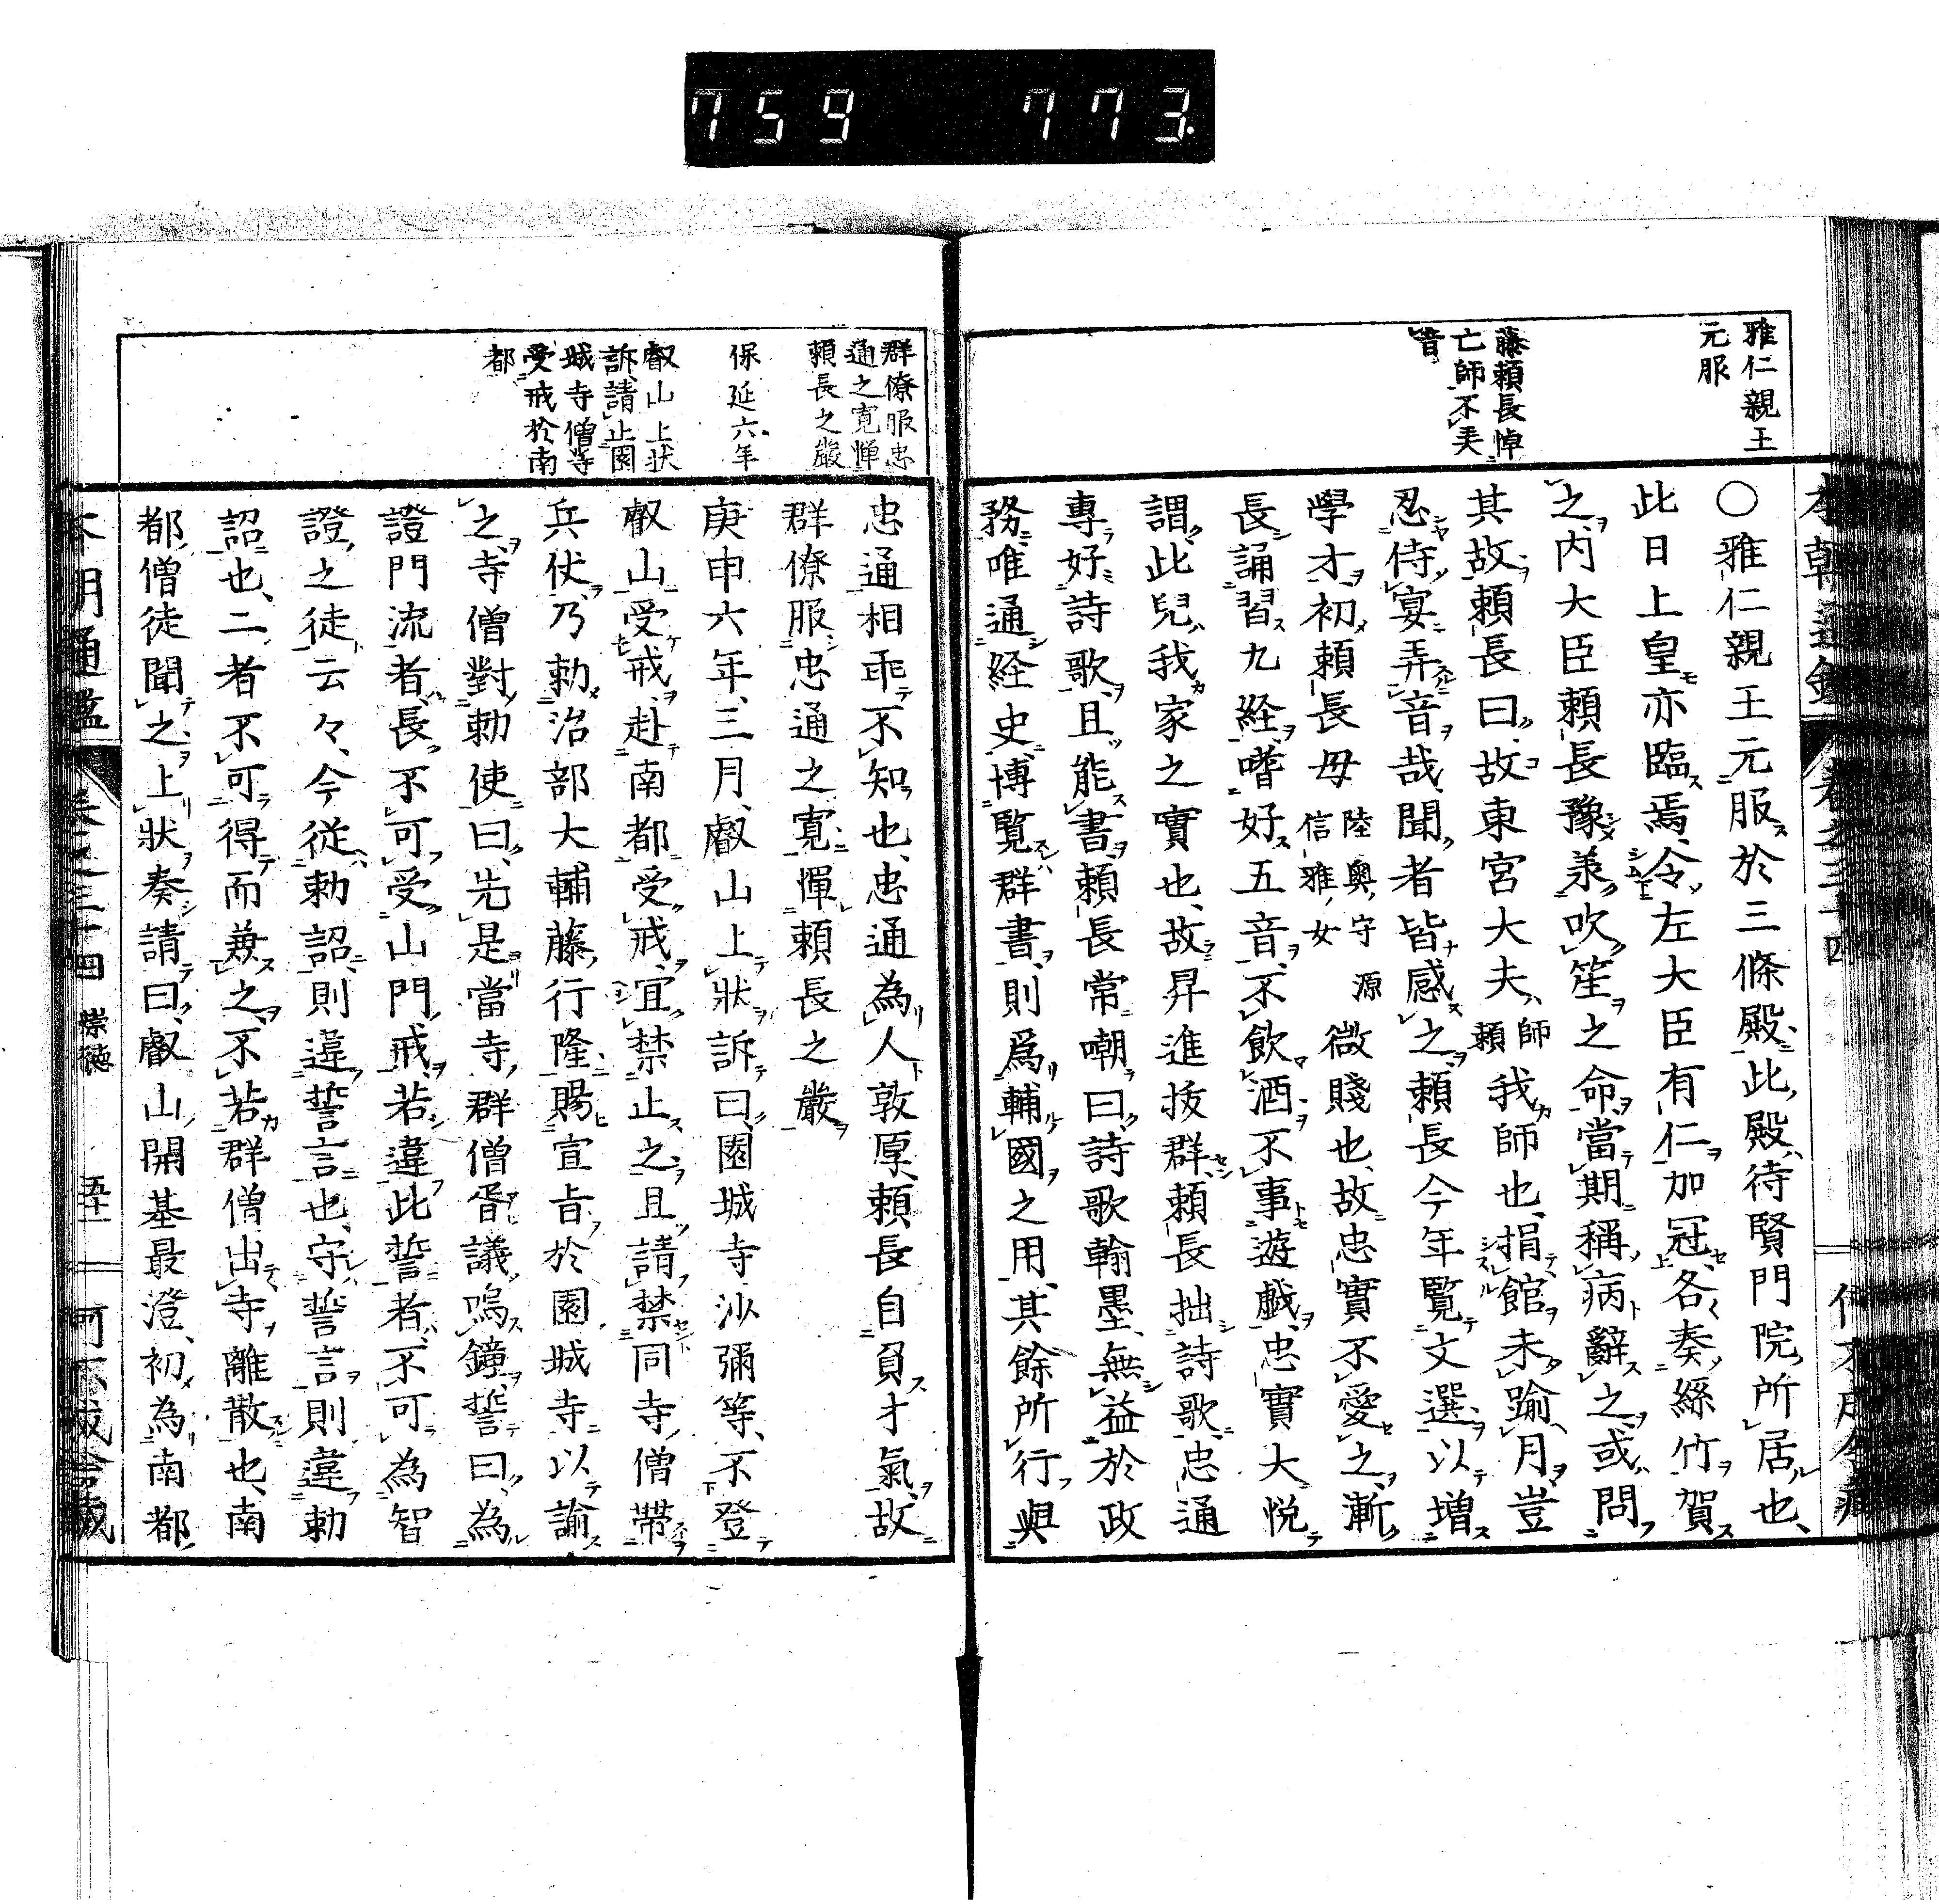 759 773.
雅仁親王
元服
藤頼長悼
亡師不美
音
○雅仁親王元服於三條殿此殿待賢門院所居也、
此日上皇亦臨焉、令左大臣有仁加冠、各奏絲竹賀
之、内大臣頼長豫羕吹笙之命、當期稱病辭之、或問
其故、頼長曰、故東宮大夫師頼我師也、捐館未踰月、豈
忍侍宴弄音哉、聞者皆感之、頼長今年覧文選以増
學才、初頼長母陸奥守源信雅女微賤也、故忠實不愛之、漸
長誦習九経、嗜好五音、不飲酒、不事遊戯、忠實大悦
謂、此兒我家之寳也、故昇進抜群、頼長拙詩歌、忠通
專好詩歌、且能書、頼長常嘲曰、詩歌翰墨、無益於政
務、唯通経史、博覧群書、則爲輔國之用、其餘所行與
群僚服忠
通之寛憚
頼長之嚴
保延六年
叡山上状
訴請止園
城寺僧等
受戒於南
都
忠通相乖、不知也、忠通為人敦厚、頼長自負才氣、故
群僚服忠通之寛、憚頼長之嚴
庚申六年、三月、叡山上状訴曰、園城寺沙彌等、不登
叡山受戒、赴南都受戒、宜禁止之、且請禁同寺僧帶
兵仗、乃勅治部大輔藤行隆賜宣旨於園城寺以諭
之、寺僧對勅使曰、先是當寺群僧胥議、鳴鐘誓曰、為
證門流者、長不可受山門戒、若違此誓者、不可為智
證之徒云々、今從勅詔、則違誓言也、守誓言則違勅
詔也、二者不可得而兼之、不若群僧出寺離散也、南
都僧徒聞之、上状奏請曰、叡山開基最澄、初為南都
本朝通鑑 卷之三十四 崇徳 五十一